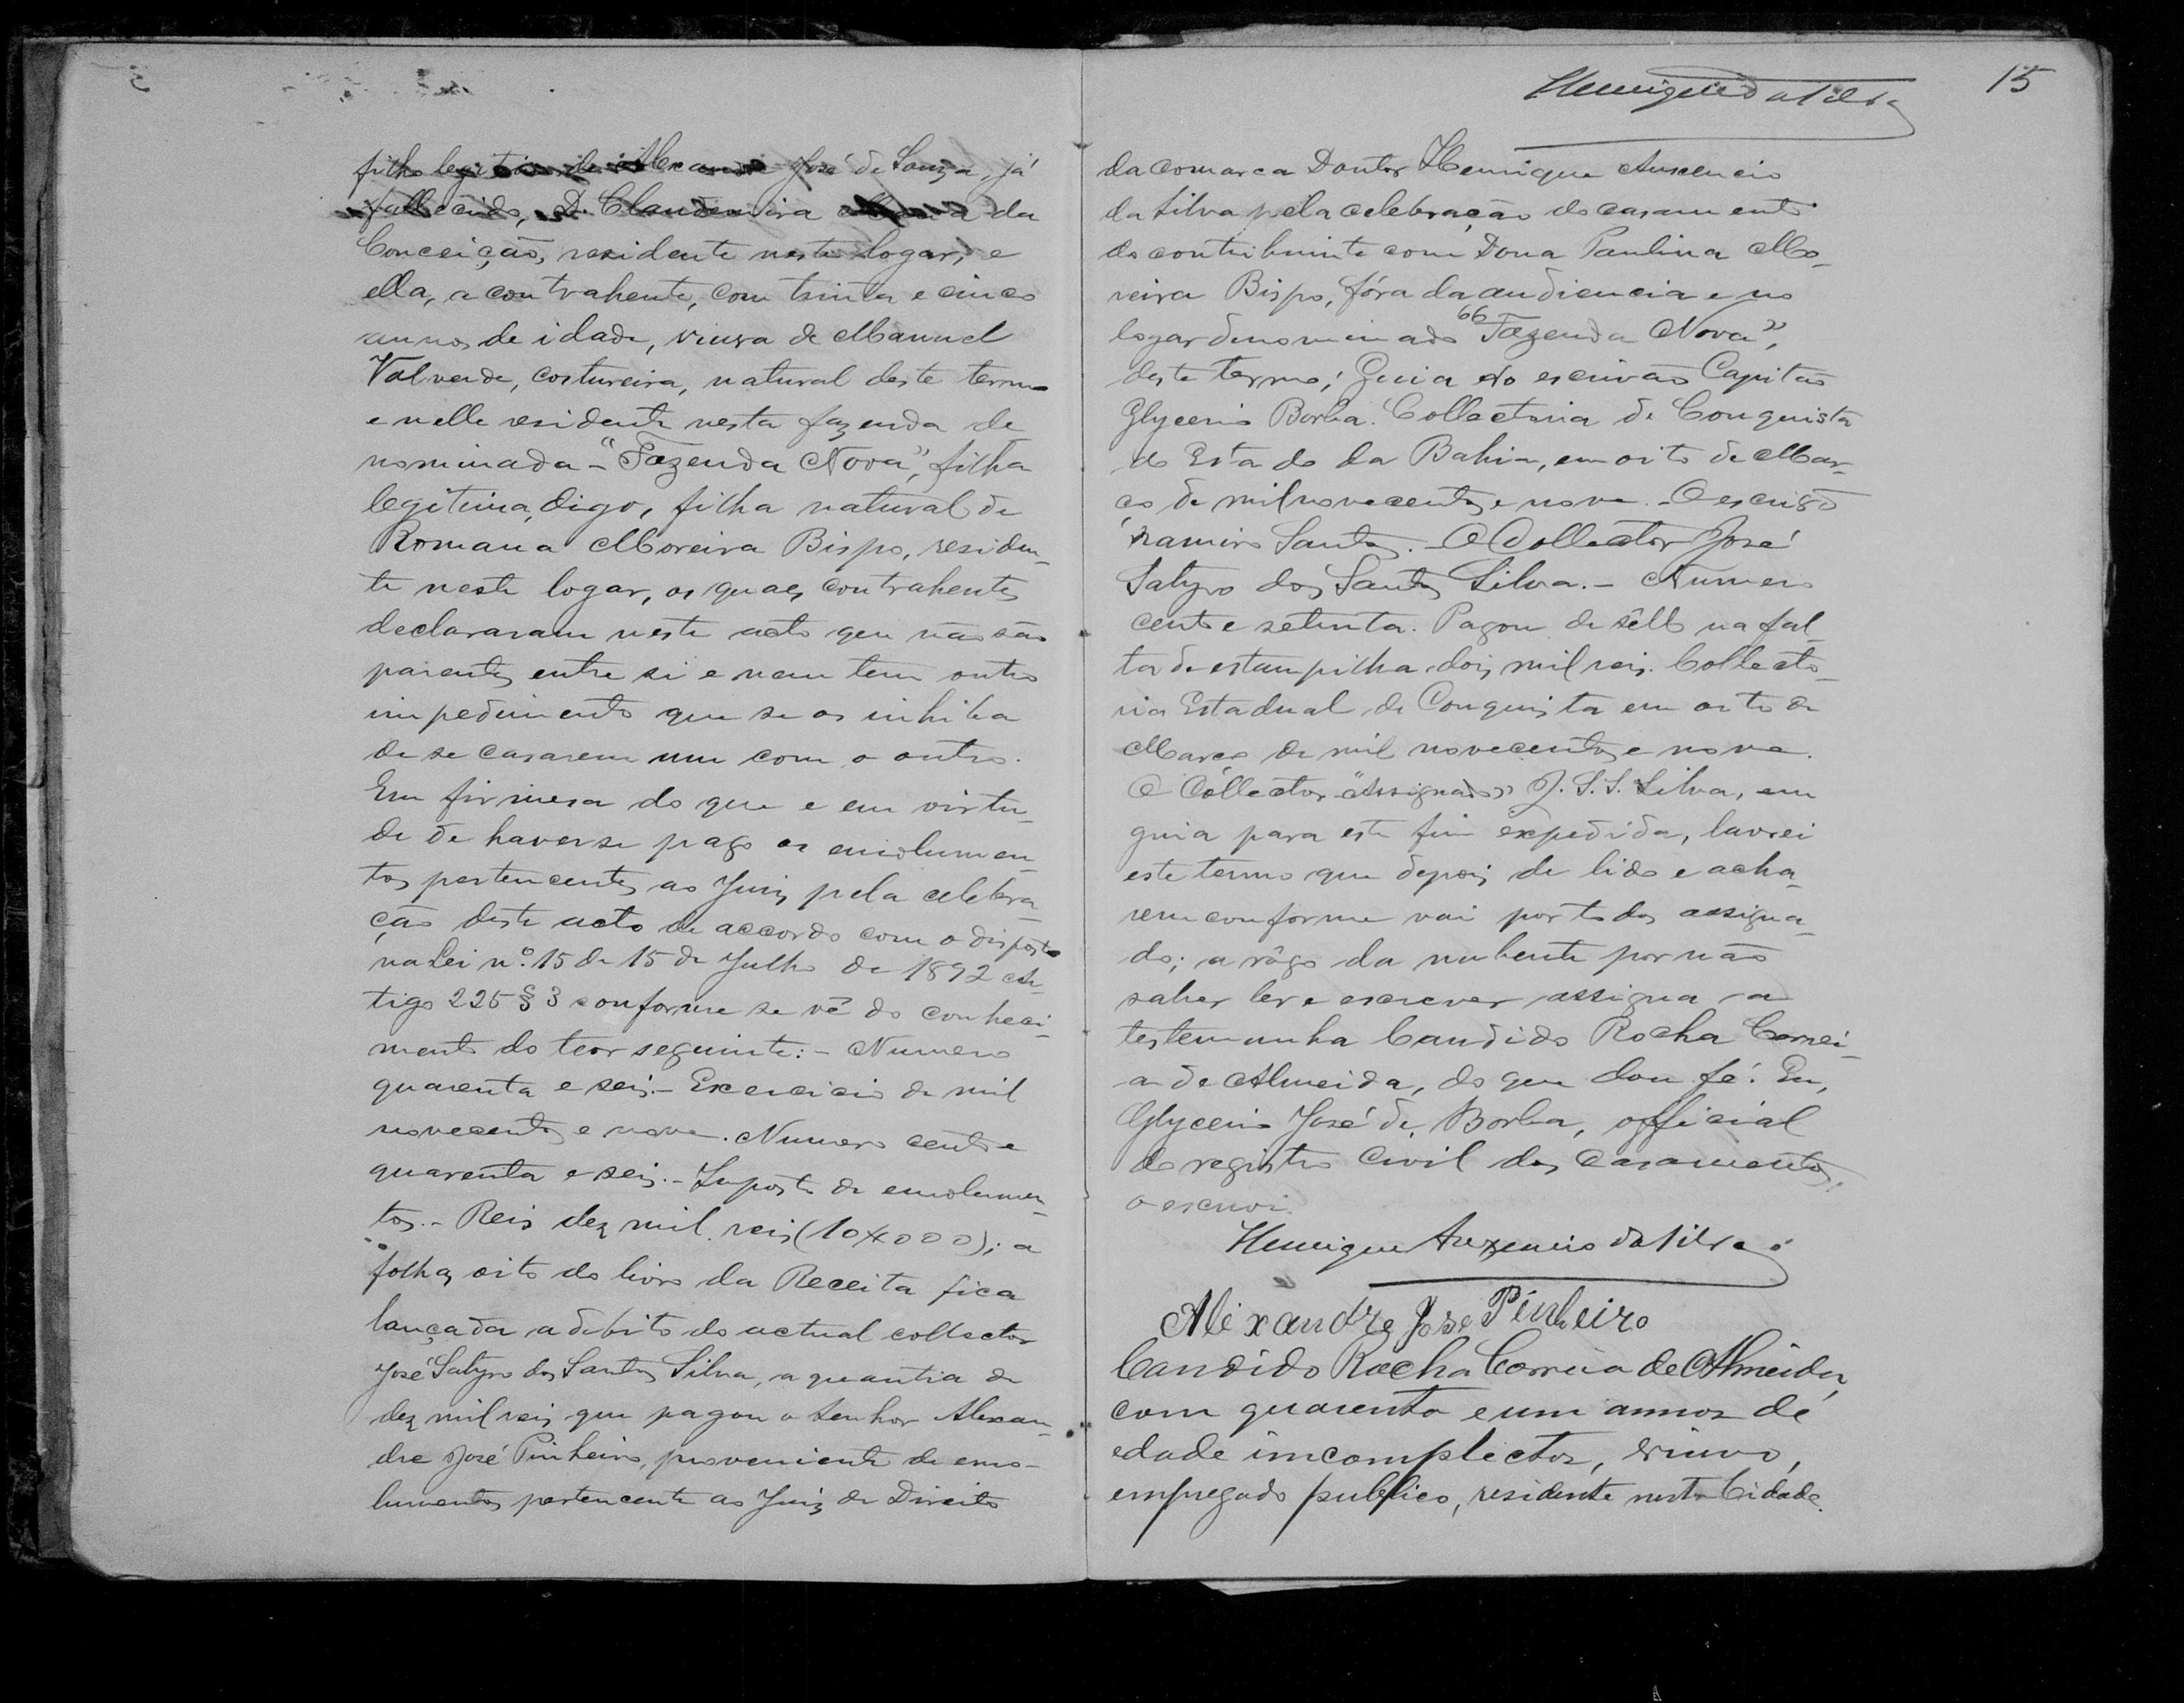 filho legitimo de Alexandre José de Souza, já
fallecido, D. Claudemira da
Conceição, residente neste logar, e
ella, a contrahente, com trinta e cinco
annos de idade, viuva de Manuel
Valverde, costureira, natural deste termo
e nelle residente nesta fazenda de
nominada - "Fazenda Nova", filha
legitima, digo, filha natural de
Romana Moreira Bispo, residen-
te neste logar, os quaes contrahentes
declararam neste acto que não são
parentes entre si e nem tem outro
impedimento que se os inhiba
de se casarem um com o outro.
Em firmesa do que e em virtu-
de de haver-se pago os emolumen-
tos pertencentes ao Juiz pela celebra-
ção deste acto de accordo com o disposto
na Lei nº 15 de 15 de Julho de 1892 ar-
tigo 225 § 3 conforme se vê do conheci-
mento do teor seguinte: - Numero
quarenta e seis. - Exercicio de mil
novecentos e nove. Numero cento e
quarenta e seis. - Imposto de emolumen-
tos. - Reis dez mil reis (10$000); a
folhas oito do livro da Receita fica
lançada a debito do actual collector
José Satyro dos Santos Silva, a quantia de
dez mil reis que pagou o Senhor Alexan-
dre José Pinheiro, proveniente de emo-
lumentos pertencente ao Juiz de Direito
Henrique da Silva
15
da comarca Doutor Henrique Auxencio
da Silva pela celebração do casamento
do contribuinte com Dona Paulina Mo-
reira Bispo, fóra da audiencia e no
logar denominado "Fazenda Nova",
deste termo; Guia do escrivão Capitão
Glycerio Borba. Collectoria de Conquista
do Estado da Bahia, em oito de Mar-
ço de mil novecentos e nove. - O escrivão
Ramiro Santos. - O Collector José
Satyro dos Santos Silva. - Numero
cento e setenta. Pagou de sêllo na fal-
ta de estampilha dois mil reis. Collecto-
ria Estadual de Conquista em oito de
Março de mil novecentos e nove.
O Collector "Assignado" J. S. S. Silva, em
guia para este fim expedida, lavrei
este termo que depois de lido e acha-
rem conforme vai por todos assigna-
do; a rôgo da nubente por não
saber ler e escrever assigna - a
testemunha Candido Rocha Correi-
a de Almeida, do que dou fé. Eu,
Glycerio José de Borba, official
do registro Civil dos Casamentos,
o escrevi.
Henrique Auxencio da Silva
Alexandre Jose Pinheiro
Candido Rocha Correia de Almeida,
com quarenta e um annos de
edade incomplectos, viuvo,
empregado publico, residente nesta Cidade.